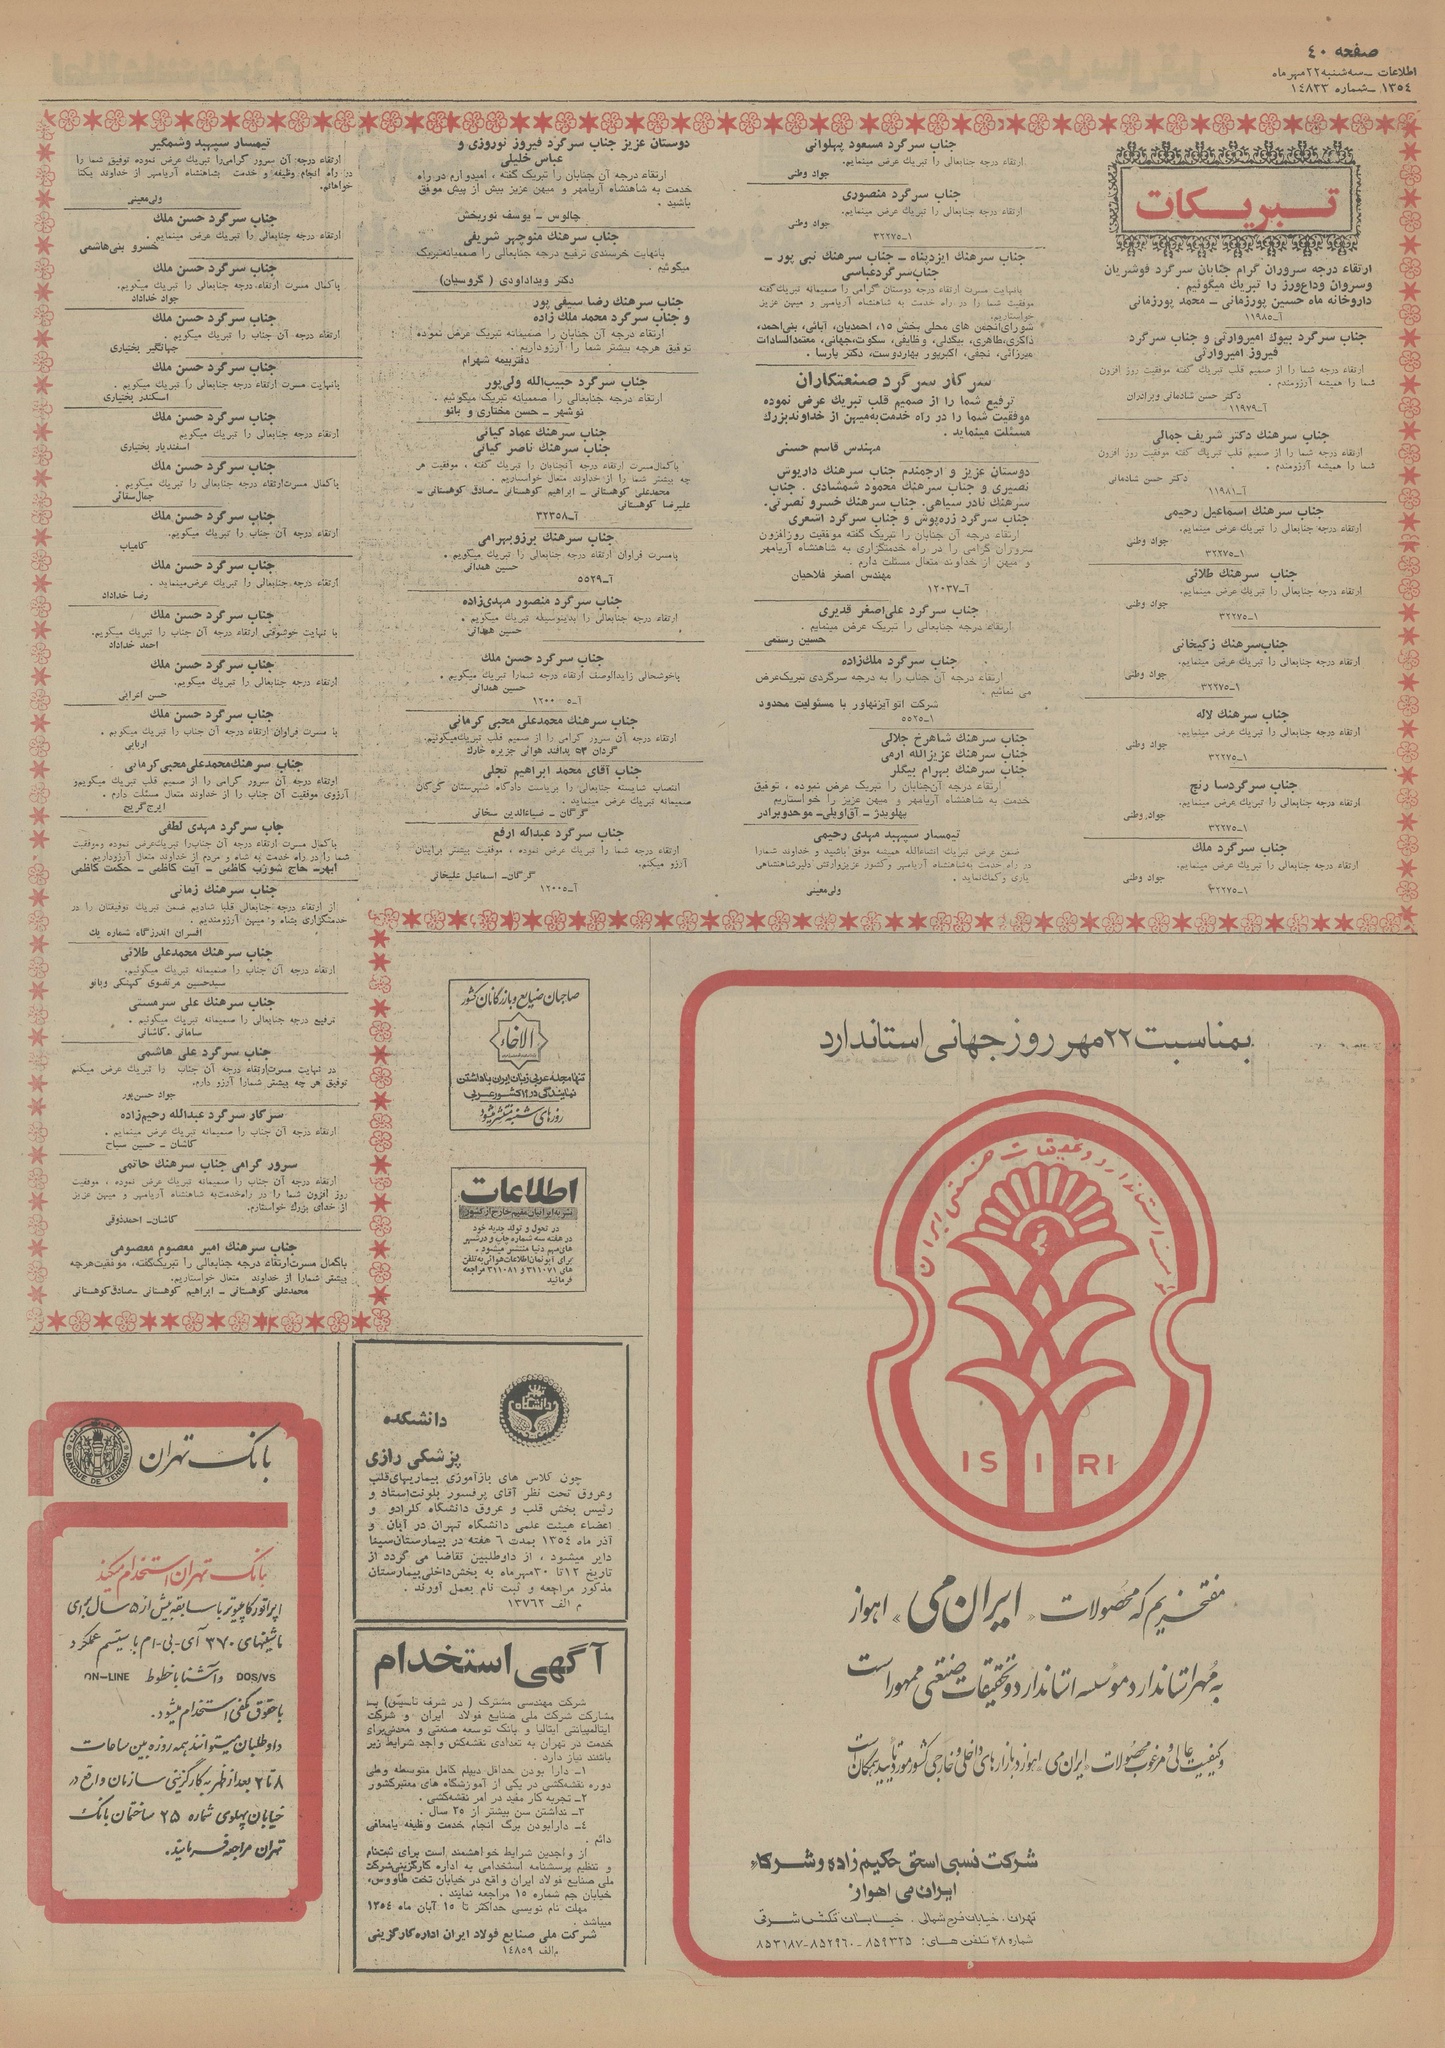 صفحه ٤٠
اطلاعات ـ سه‌شنبه ۲۲ مهر ماه
۱۳٥٤ ـ شماره ۱٤۸۳۳
تبریکات
ارتقاء درجه سروران گرام جنابان سرگرد قوشریان
وسروان وداع‌ورز را تبریک میگوئیم .
داروخانه ماه حسین پورزمانی ـ محمد پورزمانی
آ ـ ۱۱۹۸٥
جناب سرگرد بیوک امیروارثی و جناب سرگرد
فیروز امیروارثی
ارتقاء درجه شما را از صمیم قلب تبریک گفته موفقیت روز افزون
شما را همیشه آرزومندم .
دکتر حسن شادمانی وبرادران
آ ـ ۱۱۹۷۹
جناب سرهنک دکتر شریف جمالی
ارتقاء درجه شما را از صمیم قلب تبریک گفته موفقیت روز افزون
شما را همیشه آرزومندم .
دکتر حسن شادمانی
آ ـ ۱۱۹۸۱
جناب سرهنک اسماعیل رحیمی
ارتقاء درجه جنابعالی را تبریک عرض مینمایم.
جواد وطنی
۱ـ۳۲۲۷٥
جناب سرهنک طلائی
ارتقاء درجه جنابعالی را تبریک عرض مینمایم.
جواد وطنی
۱ـ۳۲۲۷٥
جناب‌سرهنک زکیخانی
ارتقاء درجه جنابعالی را تبریک عرض مینمایم.
جواد وطنی
۱ـ۳۲۲۷٥
جناب سرهنک لاله
ارتقاء درجه جنابعالی را تبریک عرض مینمایم.
جواد وطنی
۱ـ۳۲۲۷٥
جناب سرگردسا رنج
ارتقاء درجه جنابعالی را تبریک عرض مینمایم.
جواد وطنی
۱ـ۳۲۲۷٥
جناب سرگرد ملك
ارتقاء درجه جنابعالی را تبریک عرض مینمایم.
جواد وطنی
۱ـ۳۲۲۷٥
جناب سرگرد مسعود پهلوانی
ارتقاء درجه جنابعالی را تبریک عرض مینمایم.
جواد وطنی
جناب سرگرد منصوری
ارتقاء درجه جنابعالی را تبریک عرض مینمایم.
جواد وطنی
۱ـ۳۲۲۷٥
جناب سرهنک ایزدپناه ـ جناب سرهنک نبی پور ـ
جناب‌سرگردعباسی
بانهایت مسرت ارتقاء درجه دوستان گرامی را صمیمانه تبریک‌گفته
موفقیت شما را در راه خدمت به شاهنشاه آریامهر و میهن عزیز
خواستاریم.
شورای‌انجمن های محلی بخش ۱٥، احمدیان، آبائی، بنی‌احمد،
ذاکری،طاهری، بیگدلی، وظایفی، سکوت،جهانی، معتمدالسادات
میرزائی، نجفی، اکبرپور بهاردوست، دکتر پارسا .
سرکار سرگرد صنعتکاران
ترفیع شما را از صمیم قلب تبریک عرض نموده
موفقیت شما را در راه خدمت‌به‌میهن از خداوندبزرگ
مسئلت مینماید .
مهندس قاسم حسنی
دوستان عزیز و ارجمندم جناب سرهنک داریوش
نصیری و جناب سرهنک محمود شمشادی . جناب
سرهنک نادر سپاهی. جناب سرهنک خسرو نصرتی.
جناب سرگرد زره‌پوش و جناب سرگرد اشعری
ارتقاء درجه آن جنابان را تبریک گفته موفقیت روزافزون
سروران گرامی را در راه خدمتگزاری به شاهنشاه آریامهر
و میهن از خداوند متعال مسئلت دارم .
مهندس اصغر فلاحیان
آ ـ ۱۲۰۳۷
جناب سرگرد علی‌اصغر قدیری
ارتقاء درجه جنابعالی را تبریک عرض مینمایم .
حسین رستمی
جناب سرگرد ملک‌زاده
ارتقاء درجه آن جناب را به درجه سرگردی تبریک‌عرض
می نمائیم .
شرکت اتو آیزنهاور با مسئولیت محدود
۱ـ٥٥۲٥
جناب سرهنک شاهرخ جلالی
جناب سرهنک عزیزالله ارمی
جناب سرهنک بهرام بیگلر
ارتقاء درجه آن‌جنابان را تبریک عرض نموده ، توفیق
خدمت به شاهنشاه آریامهر و میهن عزیز را خواستاریم
پهلوبدز ـ آق‌اویلی ـ موحدوبرادر
تیمسار سپهبد مهدی رحیمی
ضمن عرض تبریک انشاءالله همیشه موفق باشید و خداوند شمارا
در راه خدمت به‌شاهنشاه آریامهر و کشور عزیزوارتش دلیرشاهنشاهی
یاری وکمک‌نماید .
ولی‌معینی
دوستان عزیز جناب سرگرد فیروز نوروزی و
عباس خلیلی
ارتقاء درجه آن جنابان را تبریک گفته ، امیدوارم در راه
خدمت به شاهنشاه آریامهر و میهن عزیز بیش از پیش موفق
باشید .
چالوس ـ یوسف نوربخش
جناب سرهنک منوچهر شریفی
بانهایت خرسندی ترفیع درجه جنابعالی را صمیمانه‌تبریک
میگوئیم .
دکتر ویدا داودی ( گروسیان)
جناب سرهنک رضا سیفی پور
و جناب سرگرد محمد ملک زاده
ارتقاء درجه آن جنابان را صمیمانه تبریک عرض نموده
توفیق هرچه بیشتر شما را آرزوداریم .
دفتربیمه شهرام
جناب سرگرد حبیب‌الله ولی‌پور
ارتقاء درجه جنابعالی را صمیمانه تبریک میگوئیم .
نوشهر ـ حسن مختاری و بانو
جناب سرهنک عماد کیانی
جناب سرهنک ناصر کیانی
باکمال‌مسرت ارتقاء درجه آنجنابان را تبریک گفته ، موفقیت هر
چه بیشتر شما را از خداوند متعال خواستاریم .
محمدعلی کوهستانی ـ ابراهیم کوهستانی ـ صادق کوهستانی ـ
علیرضا کوهستانی
آ ـ ۳۲۳٥۸
جناب سرهنک برزوبهرامی
بامسرت فراوان ارتقاء درجه جنابعالی را تبریک میگویم .
حسین همدانی
آ ـ ٥٥۲۹
جناب سرگرد منصور مهدی‌زاده
ارتقاء درجه جنابعالی را بدینوسیله تبریک میگویم .
حسین همدانی
جناب سرگرد حسن ملك
باخوشحالی زایدالوصف ارتقاء درجه شمارا تبریک میگویم .
حسین همدانی
آ ـ ۱۲۰۰٥
جناب سرهنک محمدعلی محبی کرمانی
ارتقاء درجه آن سرور گرامی را از صمیم قلب تبریک‌میگوئیم.
گردان ٥۳ پدافند هوائی جزیره خارک
جناب آقای محمد ابراهیم تجلی
انتصاب شایسته جنابعالی را بریاست دادگاه شهرستان گرگان
صمیمانه تبریک عرض مینماید .
گرگان ـ ضیاءالدین سخائی
جناب سرگرد عبدالله ارفع
ارتقاء درجه شما را تبریک عرض نموده ، موفقیت بیشتر برایتان
آرزو میکنم.
گرگان ـ اسماعیل علیخانی
آ ـ ۱۲۰۰٥
تیمسار سپهبد وشمگیر
ارتقاء درجه آن سرور گرامی‌را تبریک عرض نموده توفیق شما را
در راه انجام وظیفه و خدمت بشاهنشاه آریامهر از خداوند یکتا
خواهانم.
ولی‌معینی
جناب سرگرد حسن ملك
ارتقاء درجه جنابعالی را تبریک عرض مینمایم .
خسرو بنی‌هاشمی
جناب سرگرد حسن ملك
باکمال مسرت ارتقاء درجه جنابعالی را تبریک میگویم.
جواد خداداد
جناب سرگرد حسن ملك
ارتقاء درجه آن جناب را تبریک میگویم .
جهانگیر بختیاری
جناب سرگرد حسن ملك
بانهایت مسرت ارتقاء درجه جنابعالی را تبریک میگویم .
اسکندر بختیاری
جناب سرگرد حسن ملك
ارتقاء درجه جنابعالی را تبریک میگویم .
اسفندیار بختیاری
جناب سرگرد حسن ملك
باکمال مسرت‌ارتقاء درجه جنابعالی را تبریک میگویم .
جمال‌سقائی
جناب سرگرد حسن ملك
ارتقاء درجه آن جناب را تبریک میگویم.
کامیاب
جناب سرگرد حسن ملك
ارتقاء درجه جنابعالی را تبریک عرض‌مینماید .
رضا خداداد
جناب سرگرد حسن ملك
با نهایت خوشوقتی ارتقاء درجه آن جناب را تبریک میگویم.
احمد خداداد
جناب سرگرد حسن ملك
ارتقاء درجه جنابعالی را تبریک میگویم.
حسن اعرابی
جناب سرگرد حسن ملك
با مسرت فراوان ارتقاء درجه آن جناب را تبریک میگویم .
اربابی
جناب سرهنک‌محمدعلی‌محبی‌کرمانی
ارتقاء درجه آن سرور گرامی را از صمیم قلب تبریک میگویم‌و
آرزوی موفقیت آن جناب را از خداوند متعال مسئلت دارم .
ایرج‌گریچ
جناب سرگرد مهدی لطفی
باکمال مسرت ارتقاء درجه آن جناب‌را تبریک‌عرض نموده وموفقیت
شما را در راه خدمت به شاه و مردم از خداوند متعال آرزوداریم .
ابهر ـ حاج شورب کاظمی ـ آیت کاظمی ـ حکمت کاظمی
جناب سرهنک زمانی
از ارتقاء درجه‌جنابعالی قلبا شادیم ضمن تبریک توفیقتان را در
خدمتگزاری بشاه و میهن آرزومندیم .
افسران اندرزگاه شماره یک
جناب سرهنک محمدعلی طلائی
ارتقاء درجه آن جناب را صمیمانه تبریک میگوئیم.
سیدحسین مرتضوی کهنکی وبانو
جناب سرهنک علی سرمستی
ترفیع درجه جنابعالی را صمیمانه تبریک میگوئیم .
سامانی ـ کاشانی
جناب سرگرد علی هاشمی
در نهایت مسرت‌ارتقاء درجه آن جناب را تبریک عرض میکنم
توفیق هر چه بیشتر شمارا آرزو دارم.
جواد حسن‌پور
سرکار سرگرد عبدالله رحیم‌زاده
ارتقاء درجه آن جناب را صمیمانه تبریک عرض مینمایم .
کاشان ـ حسین سیاح
سرور گرامی جناب سرهنک حاتمی
ارتقاء درجه آن جناب را صمیمانه تبریک عرض نموده ، موفقیت
روز افزون شما را در راه‌خدمت‌به شاهنشاه آریامهر و میهن عزیز
از خدای بزرگ خواستارم.
کاشان ـ احمدذوقی
جناب سرهنک امیر معصوم معصومی
باکمال مسرت‌ارتقاء درجه جنابعالی را تبریک‌گفته، موفقیت‌هرچه
بیشتر شمارا از خداوند متعال خواستاریم.
محمدعلی کوهستانی ـ ابراهیم کوهستانی ـ صادق‌کوهستانی
صاحبان صنایع و بازرگانان کشور
الاخاء
تنها مجله عربی زبان ایران با داشتن
نمایندگی در ۱۲ کشور عربی
روزهای شنبه منتشر میشود
اطلاعات
نشریه ایرانیان مقیم خارج از کشور
در تحول و تولد جدید خود
در هفته سه شماره چاپ و درشهر
های مهم دنیا منتشر میشود .
برای آبونمان اطلاعات هوائی به‌تلفن
های ۳۱۱۰۷۱ و ۳۱۱۰۸۱ مراجعه
فرمائید
بمناسبت ۲۲ مهر روز جهانی استاندارد
موسسه استاندارد و تحقیقات صنعتی ایران
ISIRI
مفتخریم که محصولات « ایران می » اهواز
به مُهر استاندارد موسسه استاندارد و تحقیقات صنعتی ممهور است
و کیفیت عالی و مرغوب محصولات «ایران می» اهواز در بازارهای داخلی و خارجی کشور مورد تایید همگان است
شرکت نسبی اسحق حکیم زاده و شرکاء
ایران می اهواز
تهران، خیابان فرح شمالی ، خیابان تکش شرقی
شماره ۴۸ تلفن های: ۸۵۹۳۲۵-۸۵۲۹۶۰-۸۵۳۱۸۷
تهران
دانشگاه
دانشکده
پزشکی رازی
چون کلاس های بازآموزی بیماریهای‌قلب
وعروق تحت نظر آقای پرفسور بلونت‌استاد و
رئیس بخش قلب و عروق دانشگاه کلرادو و
اعضاء هیئت علمی دانشگاه تهران در آبان و
آذر ماه ۱۳٥٤ بمدت ٦ هفته در بیمارستان‌سینا
دایر میشود ، از داوطلبین تقاضا می گردد از
تاریخ ۱۲ تا ۳۰مهرماه به بخش‌داخلی‌بیمارستان
مذکور مراجعه و ثبت نام بعمل آورند .
م الف ۱۳۷٦۲
آگهی استخدام
شرکت مهندسی مشترک ( در شرف تاسیس) بــ
مشارکت شرکت ملی صنایع فولاد ایران و شرکت
ایتالیمپیانتی ایتالیا و بانک توسعه صنعتی و معدنی‌برای
خدمت در تهران به تعدادی نقشه‌کش واجد شرایط زیر
باشند نیاز دارد .
۱ـ دارا بودن حداقل دیپلم کامل متوسطه وطی
دوره نقشه‌کشی در یکی از آموزشگاه های معتبرکشور
۲ـ تجربه کار مفید در امر نقشه‌کشی .
۳ـ نداشتن سن بیشتر از ۳٥ سال .
٤ـ دارابودن برگ انجام خدمت وظیفه یامعافی
دائم .
از واجدین شرایط خواهشمند است برای ثبت‌نام
و تنظیم پرسشنامه استخدامی به اداره کارگزینی‌شرکت
ملی صنایع فولاد ایران واقع در خیابان تخت طاووس،
خیابان جم شماره ۱٥ مراجعه نمایند .
مهلت نام نویسی حداکثر تا ۱٥ آبان ماه ۱۳٥٤
میباشد .
شرکت ملی صنایع فولاد ایران اداره‌کارگزینی
م‌الف ۱٤۸٥۹
بانک تهران
BANQUE DE TEHERAN
بانک تهران استخدام میکند
اپراتور کامپیوتر با سابقه بیش از ۵ سال برای
ماشینهای ۳۷۰ آی-بی-ام با سیستم عملکرد
DOS/VS و آشنا با خطوط ON-LINE
با حقوق مکفی استخدام میشود.
داوطلبان میتوانند همه روزه بین ساعات
۸ تا ۲ بعد از ظهر به کارگزینی سازمان واقع در
خیابان پهلوی شماره ۲۵ ساختمان بانک
تهران مراجعه فرمایند.